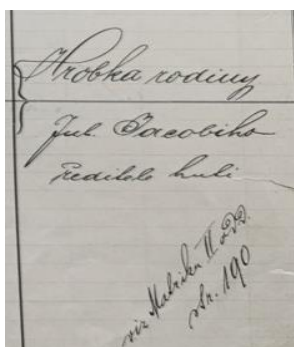 Hrobka rodiny
Jul. Jacobiho
ředitele hutí
viz Matriku II
str. 190